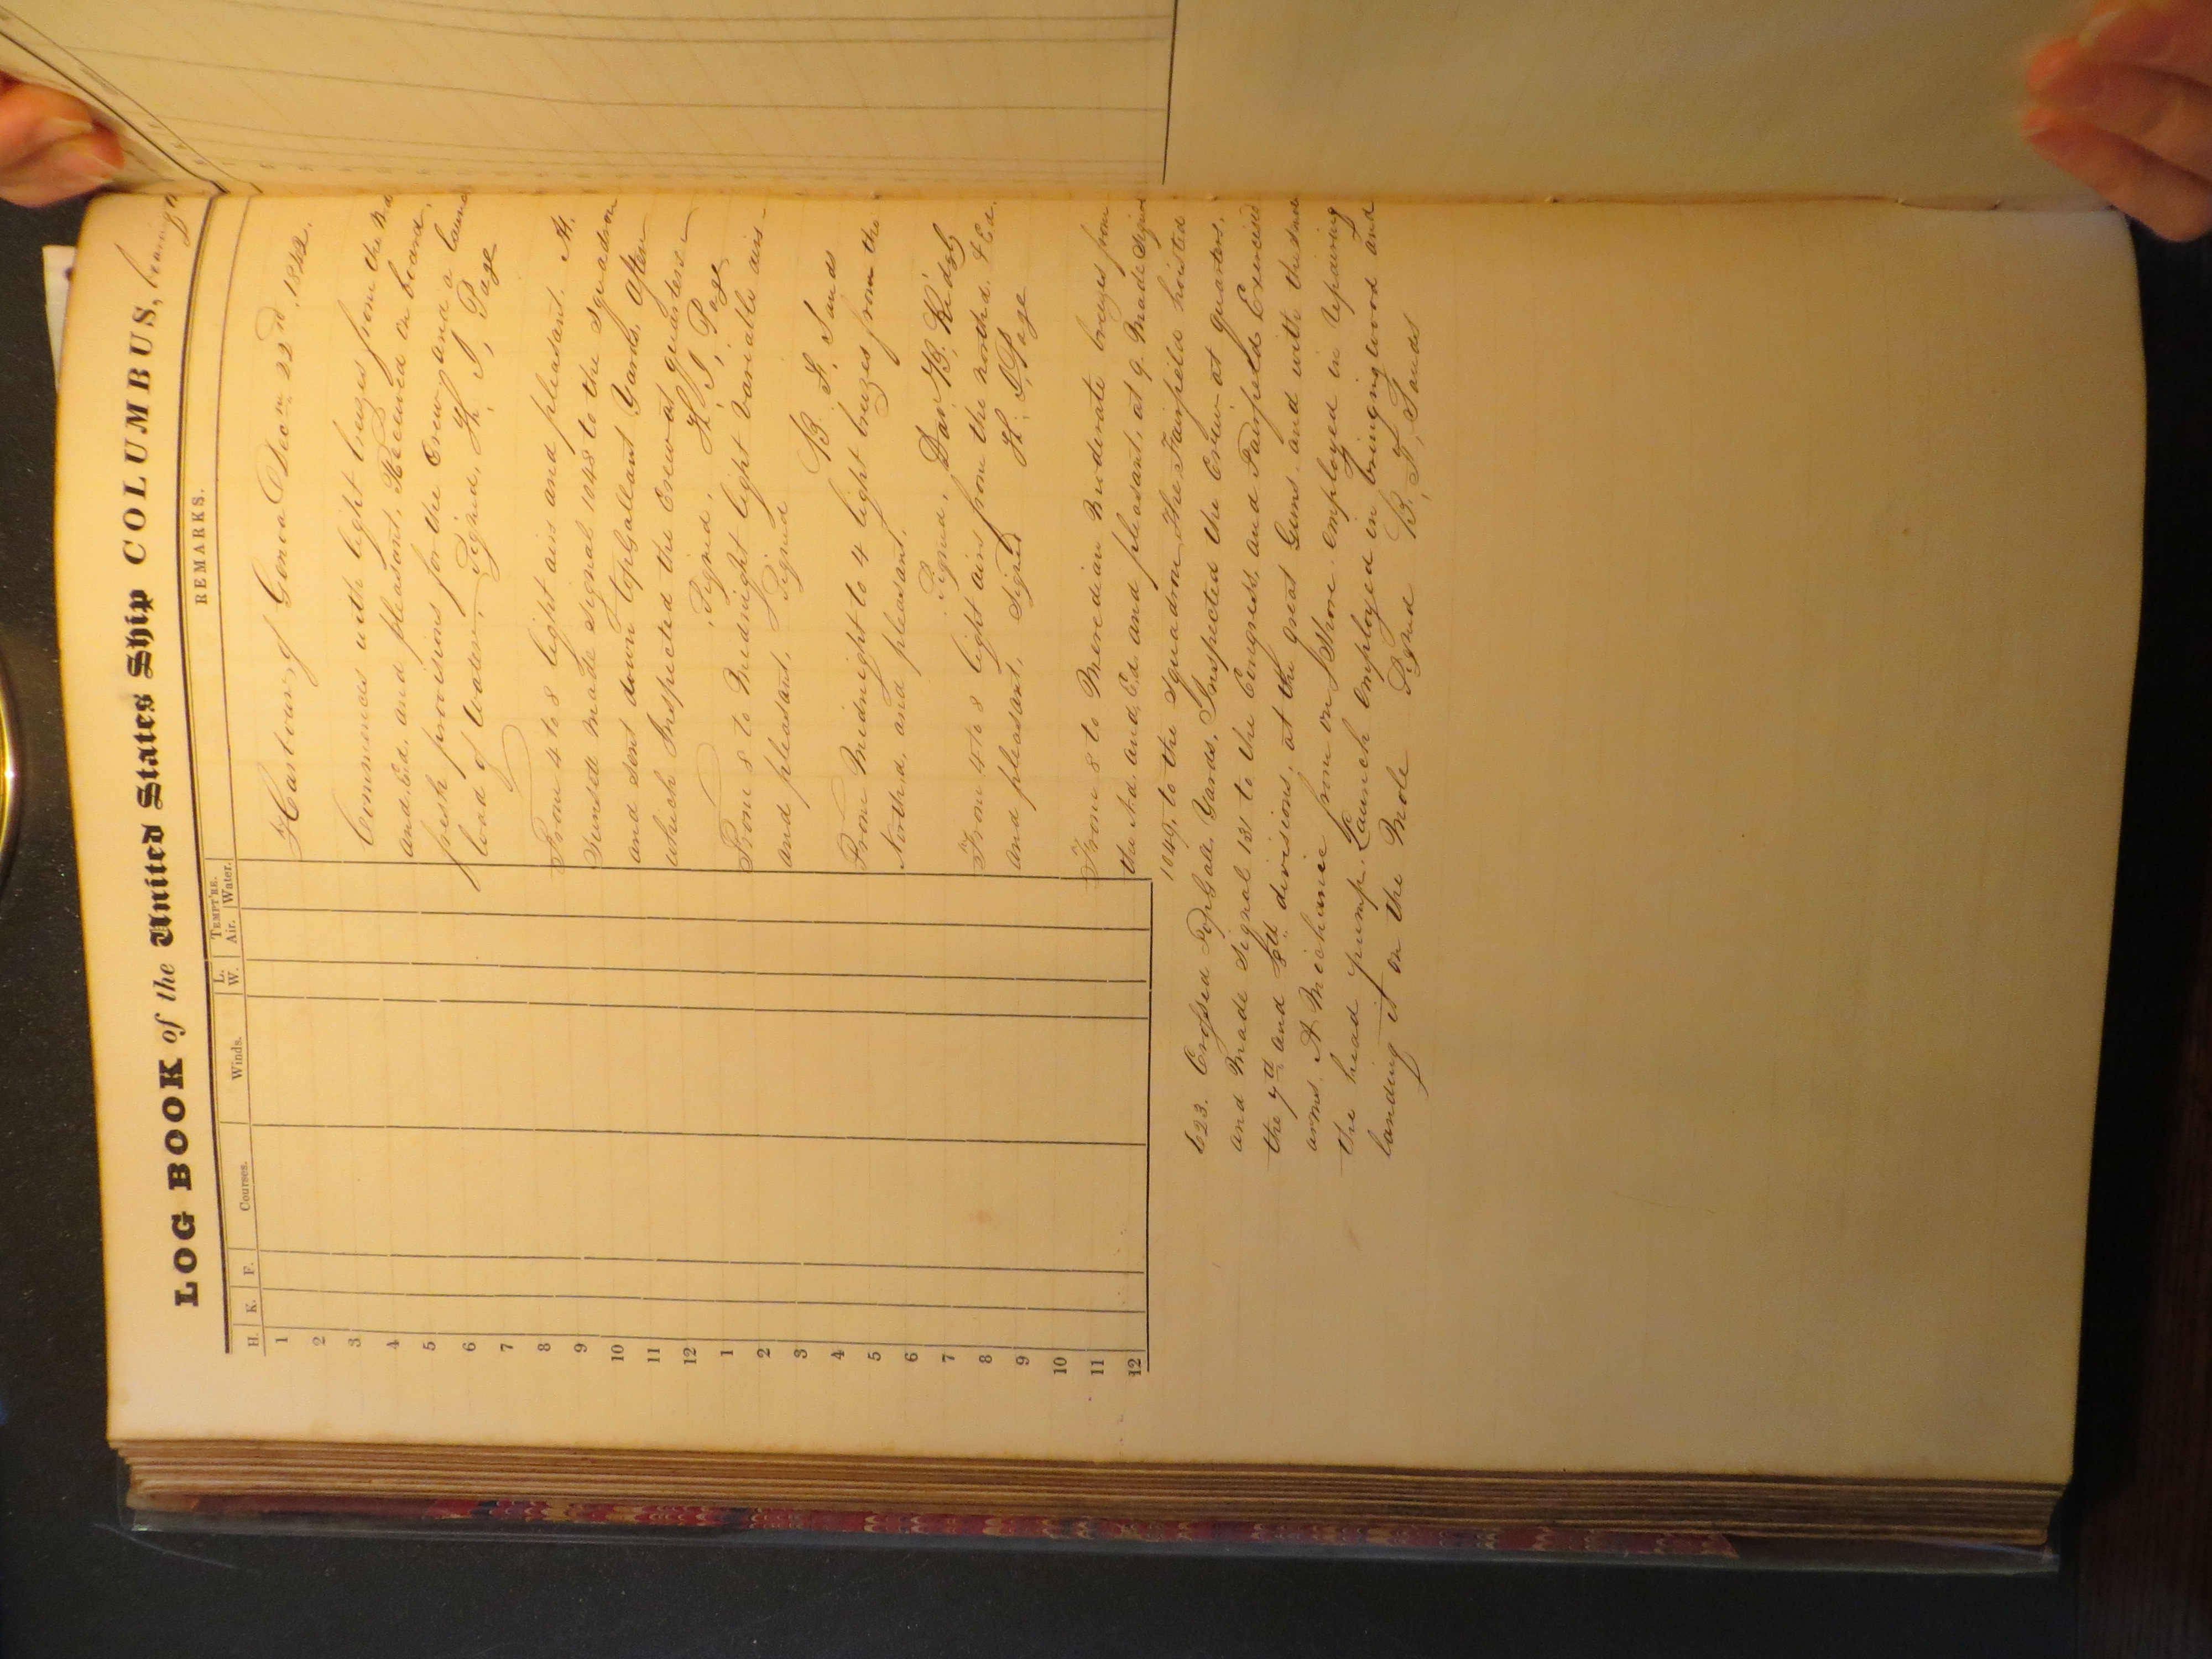 LOG BOOK of the United States Ship COLUMBUS, bearing
H. K. F. Courses. Winds. L. W. TEMPT'RE. Air. Water. REMARKS.
1
2
3
4
5
6
7
8
9
10
11
12
1
2
3
4
5
6
7
8
9
10
11
12
Harbour of Genoa Decm 22nd 1842.
Commences with light breezes from the Nd
and Ed. and pleasant, Received on board,
fresh provisions for the Crew and a launch
load of Water, Signed, H. J. Page
From 4 to 8 light airs and pleasant. At
Sunset made signal 1048 to the Squadron
and sent down TopGallant Yards, after
which Inspected the Crew at quarters
Signed, H. J. Page
From 8 to Midnight light variable airs
and pleasant, Signed B. F. Sands
From Midnight to 4 light breezes from the
North.d. and pleasant.
Signed, Dan. B. Ridgly
From 4 to 8 light airs from the north.d. & Ed.
and pleasant, Signed H. J. Page
From 8 to Meredian Moderate breezes from
the Nd. and Ed. and pleasant, at 9 Made Signal
1049, to the Squadron, The Fairfield hoisted
623. Crossed TopGall. Yards, Inspected the Crew at quarters,
and Made Signal 131 to the Congress, and Fairfield Exercised
the 4th and 5th divisions, at the great Guns, and with the small
arms, A Mechanic from on Shore employed in repairing
the head pump. Launch employed in bringing wood and
landing it on the Mole Signed B. F. Sands